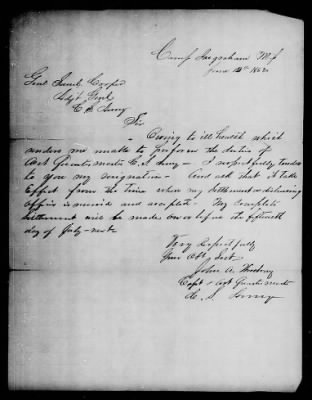 Camp Ingraham Mi
June 12th 1862
Genl Saml Cooper
Adjt Genl
C S Army
Sir
Owing to ill health which
renders me unable to perform the duties of
Asst Quarter Master C. S. Army - I respectfully tender
to you my resignation - And ask that it take
Effect from the time when my settlement as disbursing
officer is made and complete - My complete
settlement will be made on or before the fifteenth
day of July - next -
Very Respectfully
Your Obt Servt
John A.
Capt & Asst Quartermaster
C. S. Army